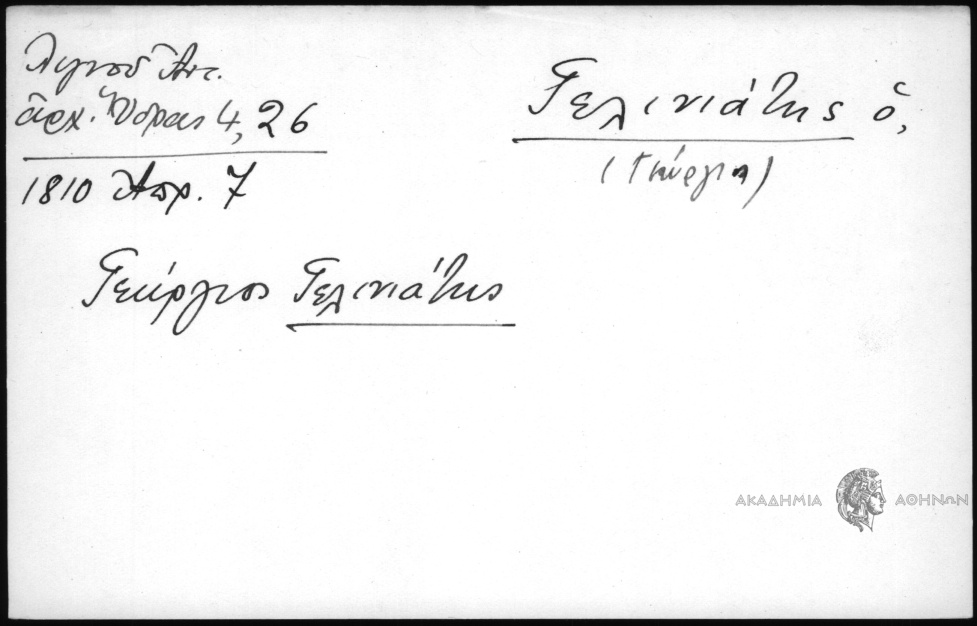 Λιγνοῦ Ἀντ.
ἀρχ. Ὕδρας 4, 26
1810 Ἀπρ. 7
Γελινιάτης ὁ,
(Γεώργιος)
Γεώργιος Γελινιάτης
ΑΚΑΔΗΜΙΑ ΑΘΗΝΩΝ